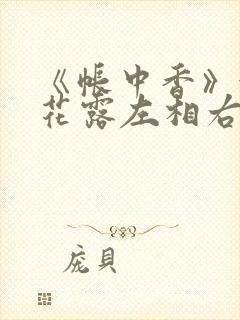 《帐中香》
花露左相右
庞贝